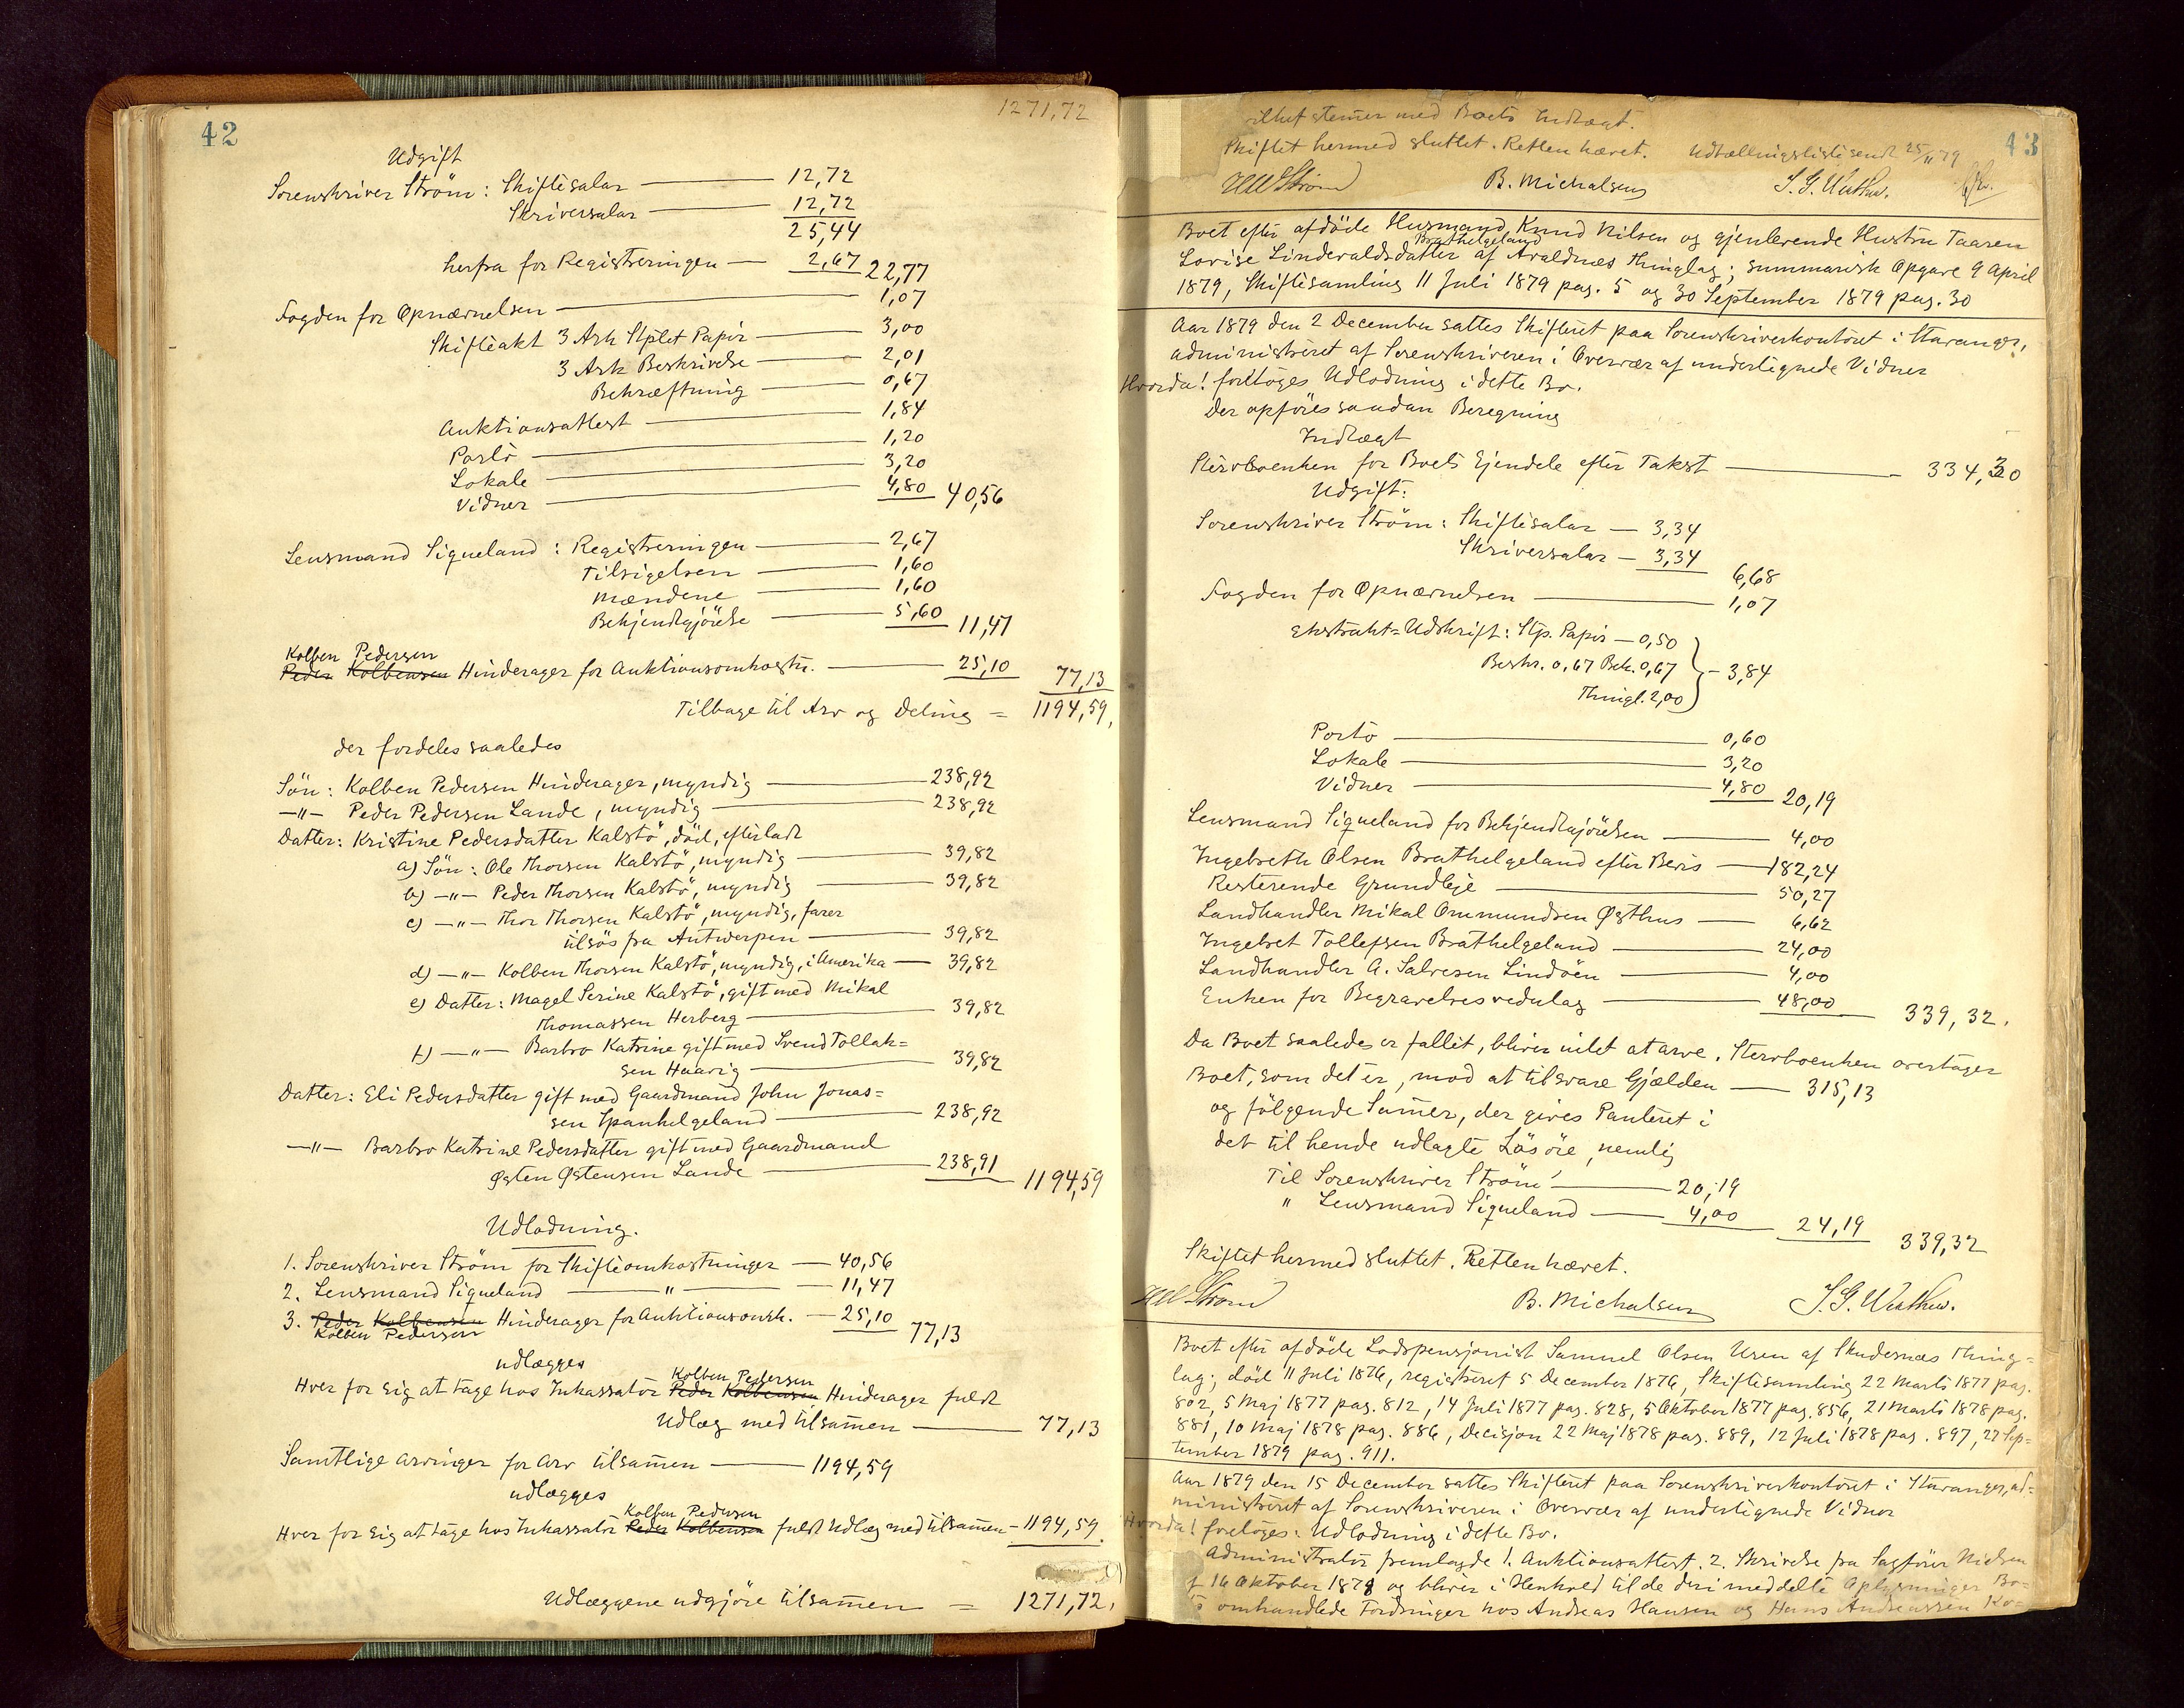 42
1271,72
Udgift
Sorenskriver Ström: Skiftesalar — 12,72
Skriversalar — 12,72
25,44
herfra for Registreringen — 2,67 22,77
Fogden for Opnævnelsen — 1,07
Skifteakt 3 Ark Stplet Papir — 3,00
3 Ark Beskrivelse — 2,01
Bekræftning — 0,67
Auktionsattest — 1,84
Porto — 1,20
Lokale — 3,20
Vidner — 4,80 40,56
Lensmand Siqueland: Registreringen — 2,67
Tilsigelsen — 1,60
Mændene — 1,60
Bekjendtgjörelse — 5,60 11,47
Kolben Pedersen
Peder Kolbensen Hinderager for Auktionsomkostn. — 25,10 77,13
Tilbage til Arv og Deling = 1194,59,
der fordeles saaledes
Sön: Kolben Pedersen Hinderager, myndig — 238,92
—"— Peder Pedersen Lande, myndig — 238,92
Datter: Kristine Pedersdatter Kalstö, död, efterladt
a) Sön: Ole Thorsen Kalstö, myndig — 39,82
b) —"— Peder Thorsen Kalstö, myndig — 39,82
c) —"— Thor Thorsen Kalstö, myndig, farer
tilsös fra Antwerpen — 39,82
d) —"— Kolben Thorsen Kalstö, myndig, i Amerika — 39,82
e) Datter: Magel Serine Kalstö, gift med Mikal
Thomassen Herberg — 39,82
f) —"— Barbro Katrine gift med Svend Tollak=
sen Haavig — 39,82
Datter: Eli Pedersdatter gift med Gaardmand John Jonas=
sen Spanhelgeland — 238,92
—"— Barbro Katrine Pedersdatter gift med Gaardmand
Østen Østensen Lande — 238,91 1194,59
Udlodning.
1. Sorenskriver Ström for Skifteomkostninger — 40,56
2. Lensmand Siqueland — " — 11,47
3. Peder Kolbensen Hinderager for Auktionsomk. — 25,10 77,13
Kolben Pedersen
udlægges
Kolben Pedersen
Hver for sig at tage hos Inkassator Peder Kolbensen Hinderager fuldt
Udlæg med tilsamen — 77,13
Samtlige Arvinger for Arv tilsamen — 1194,59
udlægges
Kolben Pedersen
Hver for sig at tage hos Inkassator Peder Kolbensen fuldt Udlæg med tilsamen — 1194,59.
Udlæggene udgjöre tilsamen = 1271,72,
43
ilket stemer med Boets Indtægt.
Skiftet hermed sluttet. Retten hævet. Udtællingsliste sendt 25/11 79
HW Ström B. Michalsen
Boet efter afdöde Husmand Knud Nilsen og gjenlevende Hustru Taaren
Brathelgeland
Lovise Linderaldsdatter af Avaldnæs Thinglag; summarisk Opgave 9 April
1879, Skiftesamling 11 Juli 1879 pag. 5 og 30 September 1879 pag. 30
Aar 1879 den 2 December sattes Skifteret paa Sorenskriverkontoret i Stavanger,
administreret af Sorenskriveren i Overvær af underlignede Vidner
Hvorda! foretoges Udlodning i dette Bo.
Der opföres saadan Beregning
Indtægt
Stervboenken for Boets Ejendele efter Takst — 334,30
Udgift:
Sorenskriver Ström: Skiftesalar — 3,34
Skriversalar — 3,34
6,68
Fogden for Opnævnelsen — 1,07
Ekstrakt=Udskrift: Stp. Papir — 0,50
Beskr. 0,67 Bek. 0,67 — 3,84
Thingl. 2,00
Porto — 0,60
Lokale — 3,20
Vidner — 4,80 20,19
Lensmand Siqueland for Bekjendtgjörelsen — 4,00
Ingebreth Olsen Brathelgeland efter Bevis — 182,24
Resterende Grundleje — 50,27
Landhandler Mikal Ommundsen Østhus — 6,62
Ingebret Tollefsen Brathelgeland — 24,00
Landhandler A. Salvesen Lindöen — 4,00
Enken for Begravelsesvedulag — 48,00 339,32.
Da Boet saaledes er fallit, bliver intet at arve. Stervboenken overtager
Boet, som det er, mod at tilsvare Gjælden — 315,13
og fölgende Sumer, der gives Panteret i
det til hende udlagte Lösöre, nemlig
Til Sorenskriver Ström — 20,19
" Lensmand Siqueland — 4,00 24,19 339,32
Skiftet hermed sluttet. Retten hævet.
HW Ström B. Michalsen
Boet efter afdöde Lodspensjonist Samuel Olsen Uren af Skudesnæs Thing=
lag; död 11 Juli 1876, registreret 5 December 1876, Skiftesamling 22 Marts 1877 pag.
802, 5 Maj 1877 pag. 812, 14 Juli 1877 pag. 828, 5 Oktober 1877 pag. 856, 21 Marts 1878 pag.
881, 10 Maj 1878 pag. 886, Decisjon 22 Maj 1878 pag. 889, 12 Juli 1878 pag. 897, 27 Sep=
tember 1879 pag. 911.
Aar 1879 den 15 December sattes Skifteret paa Sorenskriverkontoret i Stavanger, ad=
ministreret af Sorenskriveren i Overvær af underlignede Vidner
Hvorda! foretoges: Udlodning i dette Bo.
Administrator fremlagde 1. Auktionsattest. 2. Skrivelse fra Sagförer Nielsen
f 16 Oktober 1878 og bliver i Henhold til de deri meddelte Oplysninger Bo=
ts omhandlede Fordringer hos Andreas Hansen og Hans Andreassen Ko=